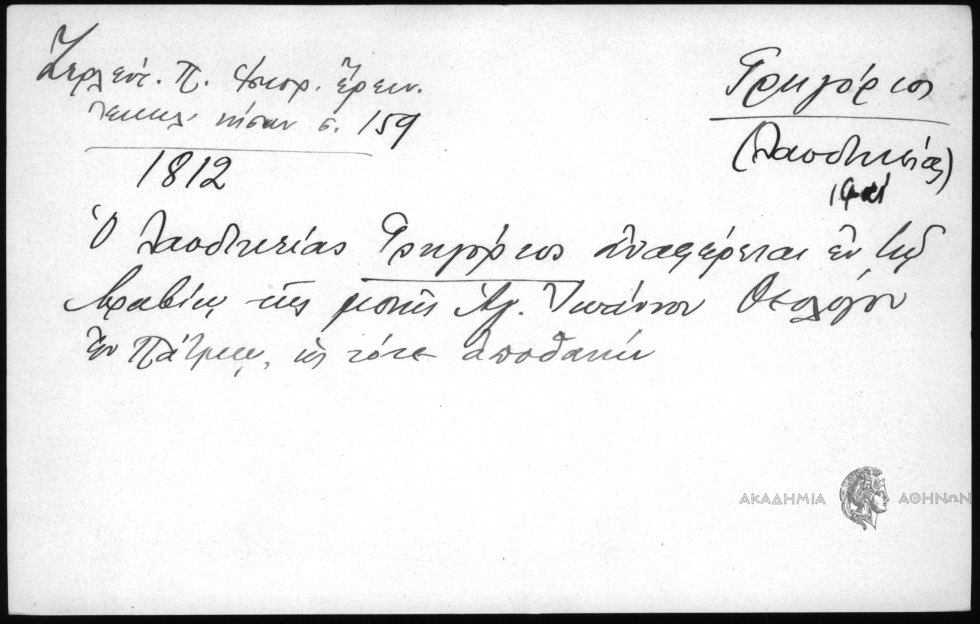 Ζερλέντ. Π. Ἱστορ. Ἔρευν.
ἐκκλ. νήσων σ. 159
1812
Γρηγόριος
(Λαοδικείας)
Ὁ Λαοδικείας Γρηγόριος ἀναφέρεται ἐν τῷ
τῆς μονῆς Ἁγ. Ἰωάννου Θεολόγου
ἐν Πάτμῳ, ὡς τότε ἀποθανών
ΑΚΑΔΗΜΙΑ ΑΘΗΝΩΝ